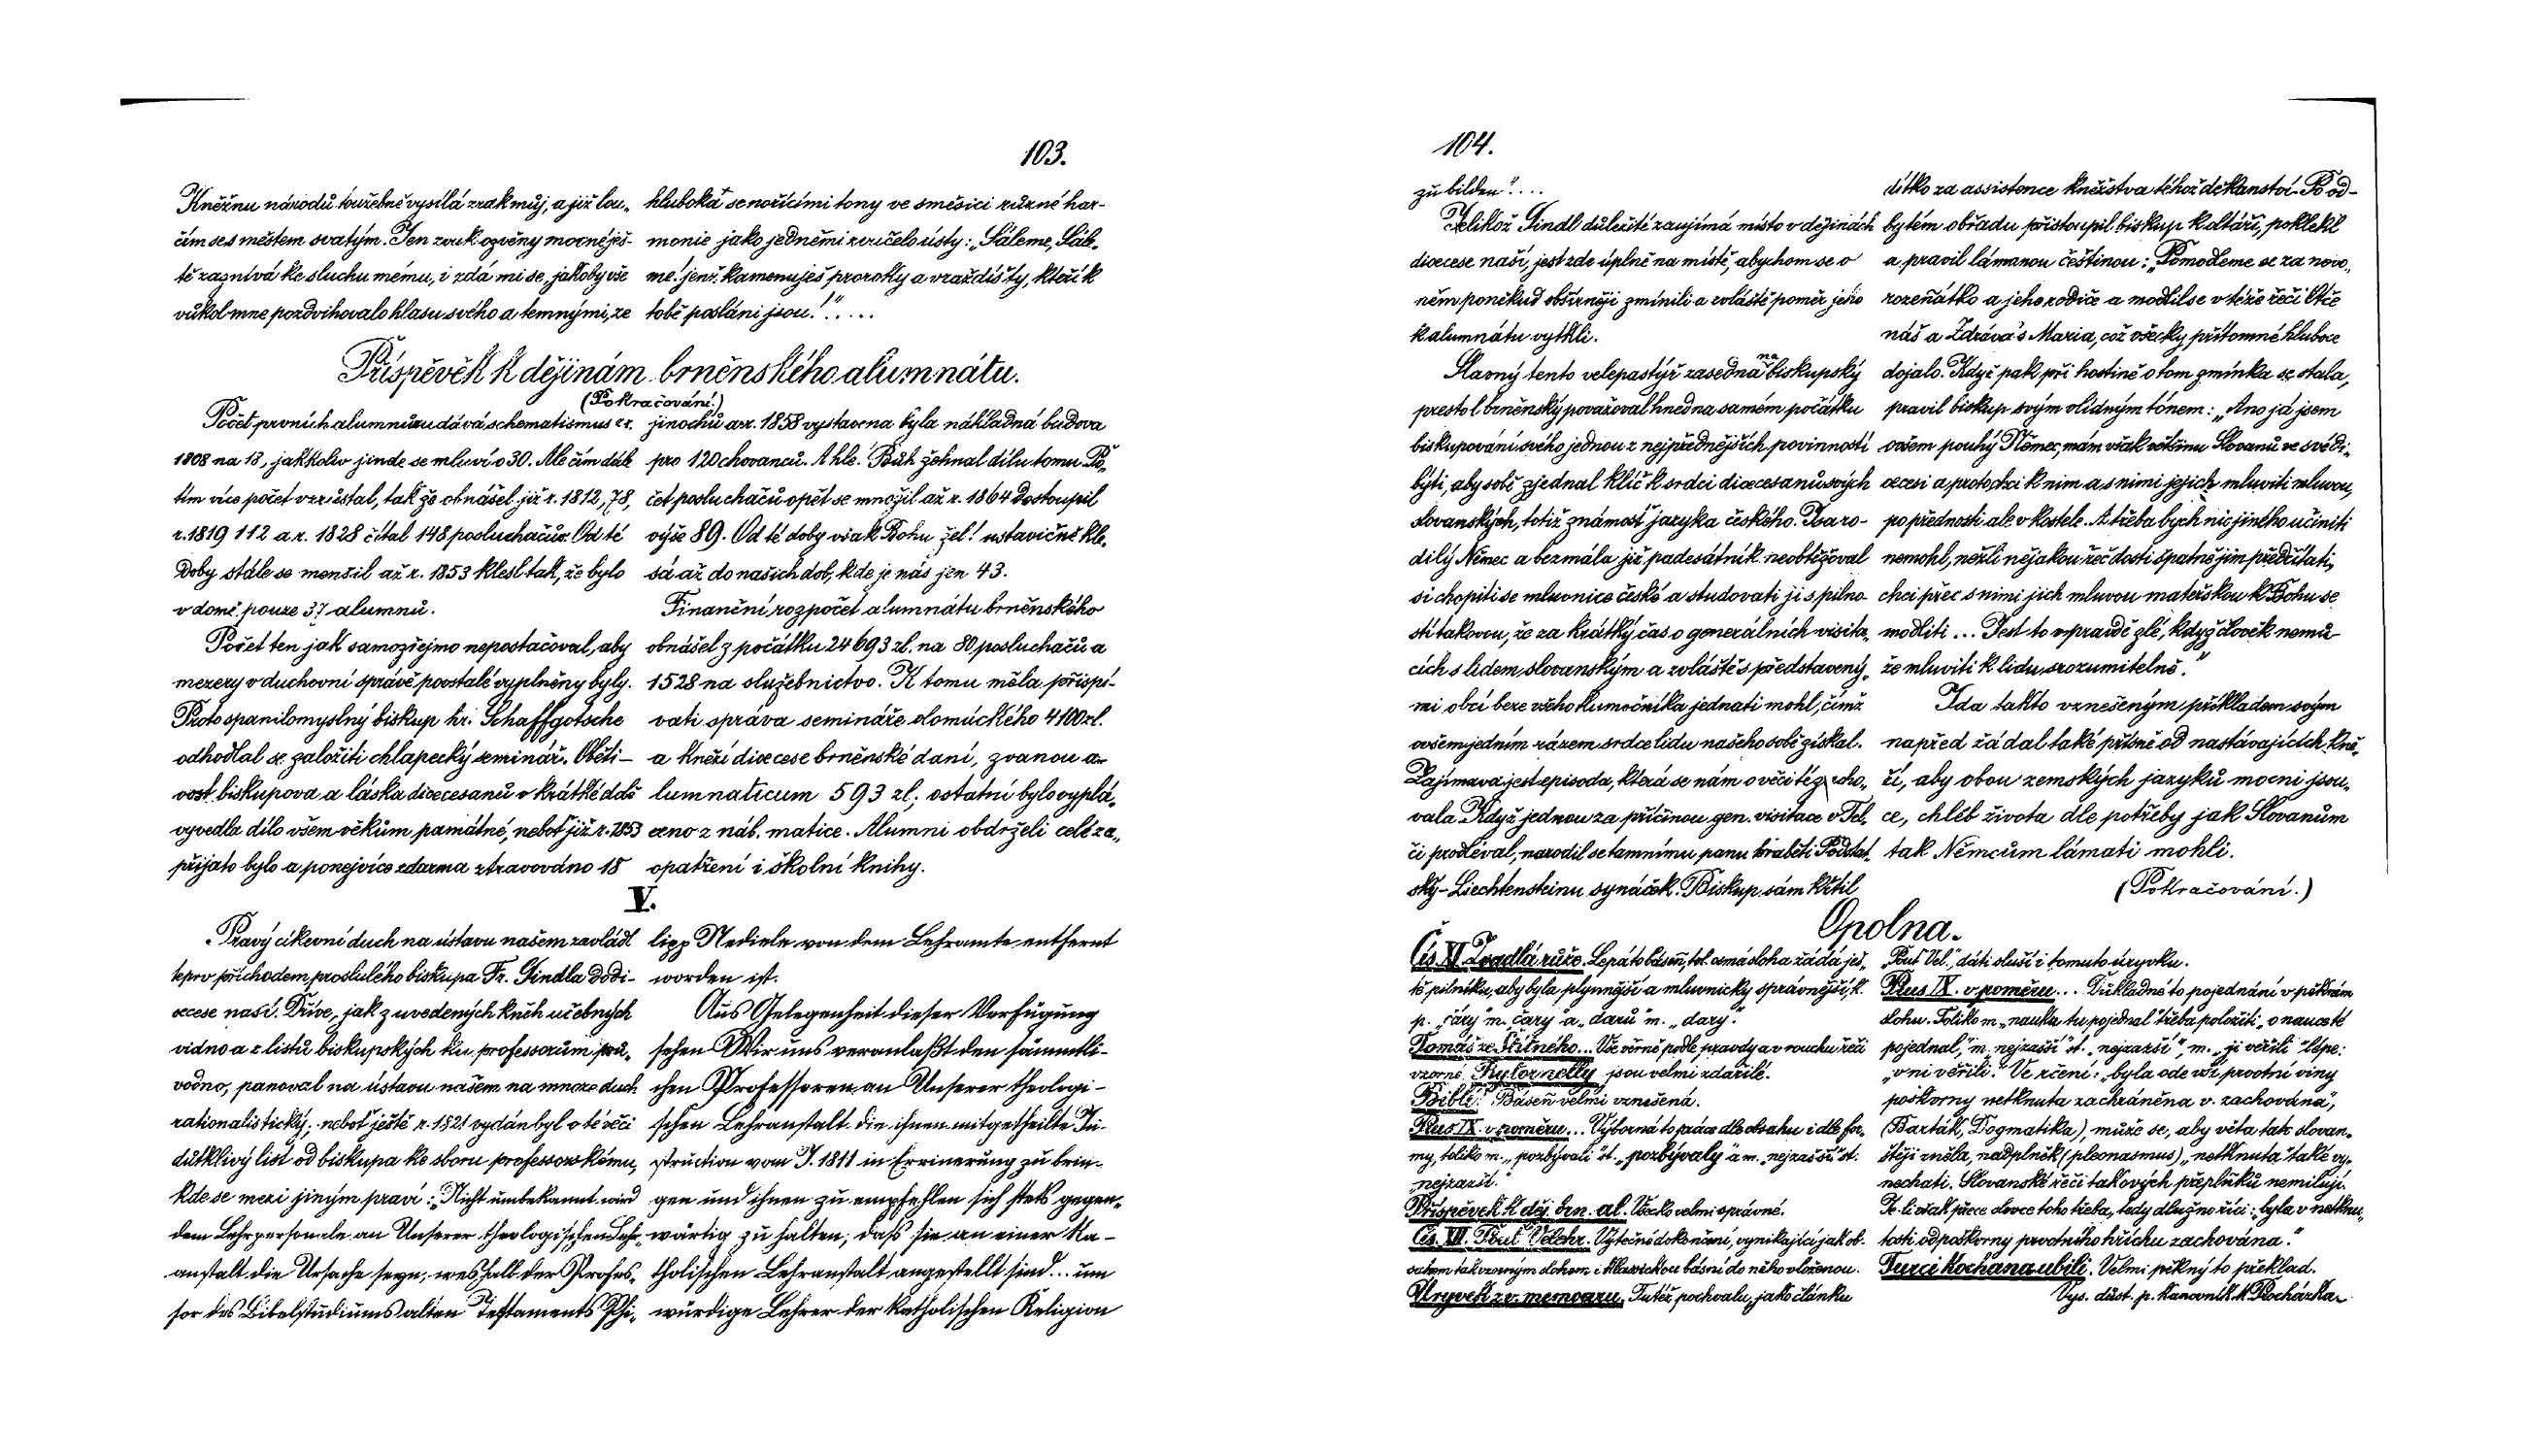 103.
Kněžnu národů toužebně vysílá zrak můj, a již lou-
čím se s městem svatým. Jen zvuk ozvěny mocné ješ-
tě zaznívá ke sluchu mému, i zdá mi se, jakoby vše
vůkol mne pozdvihovalo hlasu svého a temnými, ze
hluboká se nořícími tony ve směsici různé har-
monie jako jedněmi zvučelo ústy: „Sáleme, Sále-
me! jenž kamenuješ proroky a vraždíš ty, kteří k
tobě posláni jsou!".....
Příspěvek k dějinám brněnského alumnátu.
(Pokračování.)
Počet prvních alumnů udává schematismus z r.
1808 na 18, jakkoliv jinde se mluví o 30. Ale čím dále
tím více počet vzrůstal, tak že obnášel již r. 1812, 78,
r. 1819 112 a r. 1828 čítal 148 posluchačův. Od té
doby stále se menšil až r. 1853 klesl tak, že bylo
v domě pouze 37 alumnů.
Počet ten jak samozřejmo nepostačoval, aby
mezery v duchovní správě povstalé vyplněny byly.
Proto spanilomyslný biskup hr. Schaffgotsche
odhodlal se založiti chlapecký seminář. Oběti-
vost biskupova a láska diecesanů v krátké době
vyvedla dílo všem věkům památné, neboť již r. 1853
přijato bylo a ponejvíce zdarma stravováno 18
jinochů a r. 1858 vystavena byla nákladná budova
pro 120 chovanců. A hle! Bůh žehnal dílu tomu. Po-
čet posluchačů opět se množil až r. 1864 dostoupil
výše 89. Od té doby však Bohu žel! ustavičně kle-
sá až do našich dob, kde je nás jen 43.
Finanční rozpočet alumnátu brněnského
obnášel z počátku 24693 zl. na 80 posluchačů a
1528 na služebnictvo. K tomu měla přispí-
vati správa semináře olomúckého 4100 zl.
a kněží diecese brněnské daní, zvanou a-
lumnaticum 593 zl; ostatní bylo vyplá-
ceno z náb. matice. Alumni obdrželi celé za-
opatření i školní knihy.
V.
Pravý církevní duch na ústavu našem zavládl
teprv příchodem proslulého biskupa Fr. Gindla do di-
ecese naší. Dříve, jak z uvedených kněh učebných
vidno a z listů biskupských ku professorům prů-
vodno, panoval na ústavu našem na mnoze duch
rationalistický; neboť ještě r. 1821 vydán byl o té věci
důtklivý list od biskupa ke sboru professorskému,
kde se mezi jiným praví: „Nicht unbekannt wird
dem Lehrpersonale an Unserer theologischen Lehr-
anstalt die Ursache seyn, weshalb der Profes-
sor des Bibelstudiums alten Testaments Phi-
lipp Nediele von dem Lehramte entfernt
worden ist.
Aus Gelegenheit dieser Verfügung
sehen Wir uns veranlaßt den sämmtli-
chen Professoren an Unserer theologi-
schen Lehranstalt die ihnen mitgetheilte In-
struction vom J. 1811 in Errinerung zu brin-
gen und ihnen zu empfehlen sich stets gegen-
wärtig zu halten, daß sie an einer Ka-
tholischen Lehranstalt angestellt sind... um
würdige Lehrer der Katholischen Religion
104.
zu bilden"....
Jelikož Gindl důležité zaujímá místo v dějinách
diecese naší, jest zde úplně na místě, abychom se o
něm poněkud obšírněji zmínili a zvláště poměr jeho
k alumnátu vytkli.
Slavný tento velepastýř zasednà na biskupský
prestol brněnský považoval hned na samém počátku
biskupování svého jednou z nejpřednějších povinností
býti, aby sobě zjednal klíč k srdci diecesanů svých
slovanských, totiž známosť jazyka českého. Jsa ro-
dilý Němec a bezmála již padesátník neobtěžoval
si chopiti se mluvnice české a studovati ji s pilno-
stí takovou, že za krátký čas o generálních visita-
cích s lidem slovanským a zvláště s představený-
mi obcí beze všeho tlumočníka jednati mohl, čímž
ovšem jedním rázem srdce lidu našeho sobě získal.
Zajímava jest episoda, která se nám o věci té zacho-
vala. Když jednou za příčinou gen. visitace v Tel-
či prodléval, narodil se tamnímu panu hraběti Podstat-
ský-Liechtensteinu synáček. Biskup sám křtil
dítko za assistence kněžstva téhož děkanství. Po od-
bytém obřadu přistoupil biskup k oltáři, poklekl
a pravil lámanou češtinou: „Pomodleme se za novo-
rozeňátko a jeho rodiče a modlil se v téže řeči Otče
náš a Zdráva's Maria, což všecky přítomné hluboce
dojalo. Když pak při hostině o tom zmínka se stala,
pravil biskup svým vlídným tónem: „Ano já jsem
ovšem pouhý Němec, mám však většinu Slovanů ve své di-
ecesi a proto chci k nim a s nimi jejich mluviti mluvou,
po přednosti ale v kostele. A třeba bych nic jiného učiniti
nemohl, nežli nějakou řeč dosti špatně jim předčítati,
chci přec s nimi jich mluvou mateřskou k Bohu se
modliti... Jest to vpravdě zlé, když člověk nemů-
že mluviti k lidu srozumitelně."
Jda takto vznešeným příkladem svým
napřed žádal také přísně od nastávajících kně-
ží, aby obou zemských jazyků mocni jsou-
ce, chléb života dle potřeby jak Slovanům
tak Němcům lámati mohli.
(Pokračování.)
Opolna.
Čís. XI. Zvadlá růže. Lepá to báseň, tol. osmásloha žádá ješ-
tě pilníku, aby byla plynnější a mluvnicky správnější, k.
p. „čáry" m. čary" a „darů" m. „dary".
Tomáš ze Štítného... Vše věrně podle pravdy a v rouchu řeči
vzorné. Rytornelly jsou velmi zdařilé.
Bibli. Báseň velmi vznešená.
Pius IX. v poměru... Výborná to práce dle obsahu i dle for-
my, toliko m. „pozbývali" st. „pozbývaly" a m. „nejzašší" st.
„nejzazší."
Příspěvek k děj. brn. al. Všecko velmi správné.
Čís. XII. Pouť Velehr. Výtečné dokončení, vynikající jak ob-
sahem tak vzorným slohem i klassickou básní do něho vloženou.
Úryvek z v. memoaru. Tutéž pochvalu, jako článku
„Pouť Vel.", dáti sluší i tomuto úryvku.
Pius IX. v poměru... Důkladné to pojednání v pěkném
slohu. Toliko m. „nauka tu pojednal" třeba položiti „o nauce té
pojednal," m. „nejzašší" st. „nejzazší", m. „ji věřili" lépe:
„v ni věřili." Ve rčení: „byla ode vší prvotní viny
poskvrny netknuta zachráněna v. zachována",
(Barták, Dogmatika), může se, aby věta tak slovan-
štěji zněla, nadplněk (pleonasmus) „netknuta" také vy-
nechati. Slovanské řeči takových přeplňků nemilují.
Je-li však přece slovce toho třeba, tady dlužno říci: „byla v netknu-
tosti od poškvrny prvotního hříchu zachována."
Turci Kochana ubili. Velmi pěkný to překlad.
Vys. důst. p. kanovník M. Procházka.